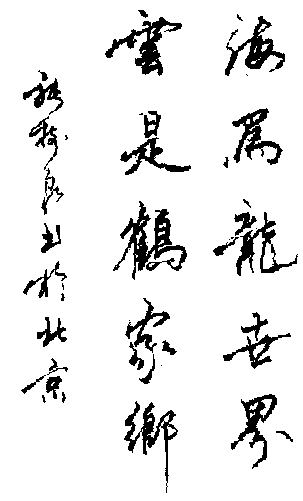 海為龍世界
雲是鶴家鄉
書於北京